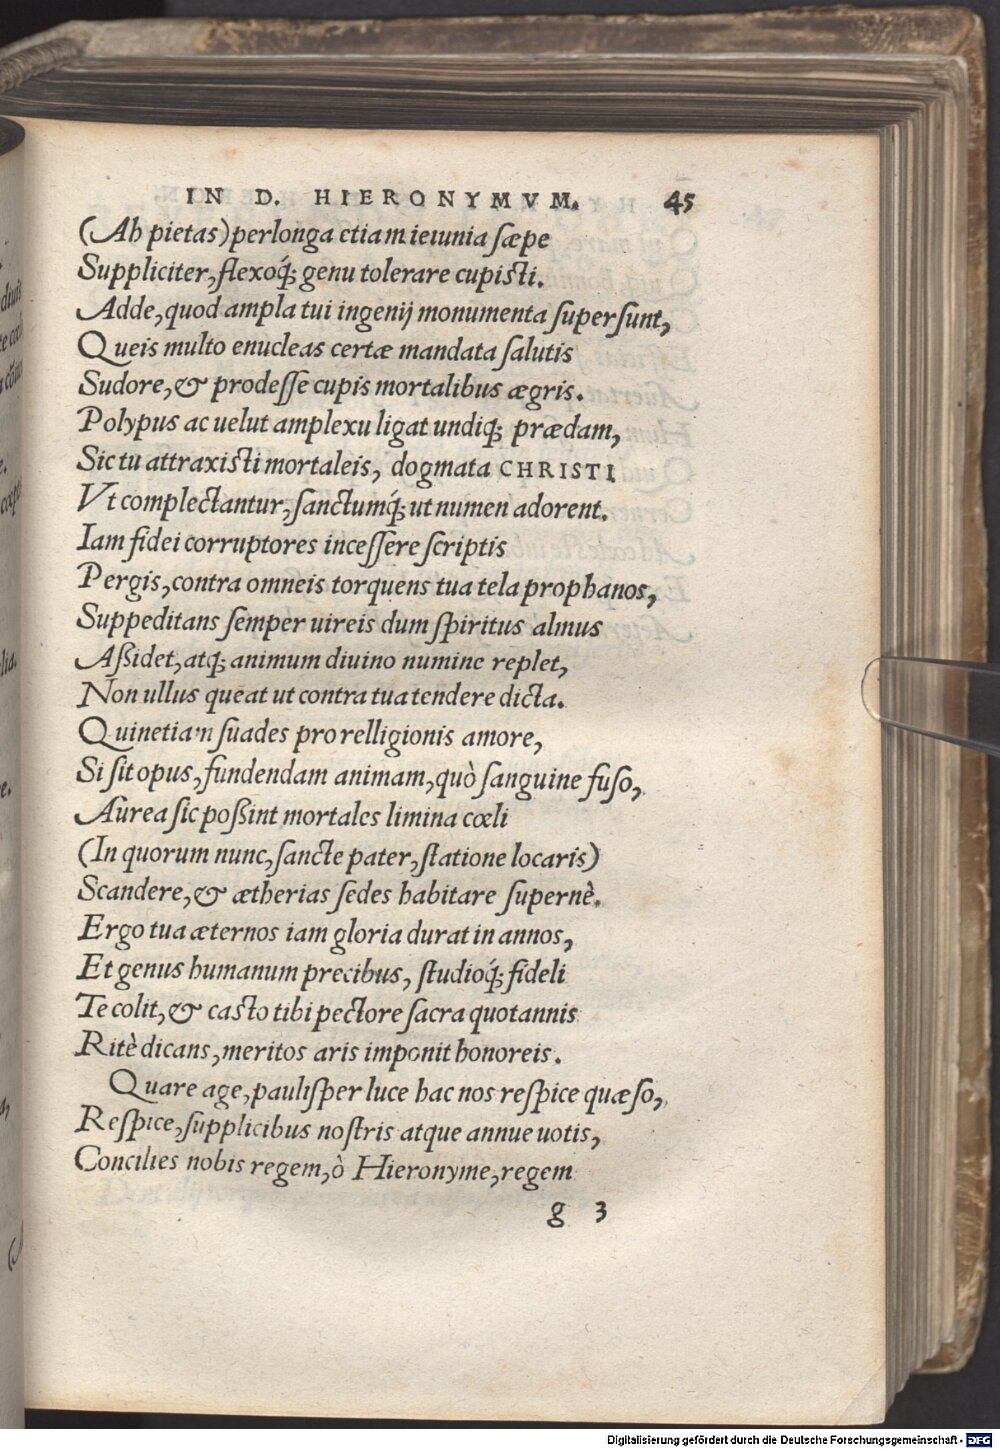 IN D. HIERONYMVM. 45
(Ah pietas) perlonga etiam ieiunia sæpe
Suppliciter, flexoq́; genu tolerare cupisti.
Adde, quod ampla tui ingenij monumenta supersunt,
Queis multo enucleas certæ mandata salutis
Sudore, & prodesse cupis mortalibus ægris.
Polypus ac uelut amplexu ligat undiq; prædam,
Sic tu attraxisti mortaleis, dogmata CHRISTI
Vt complectantur, sanctumq́; ut numen adorent.
Iam fidei corruptores incessere scriptis
Pergis, contra omneis torquens tua tela prophanos,
Suppeditans semper uireis dum spiritus almus
Aßidet, atq; animum diuino numine replet,
Non ullus queat ut contra tua tendere dicta.
Quinetiam suades pro relligionis amore,
Si sit opus, fundendam animam, quò sanguine fuso,
Aurea sic poßint mortales limina cœli
(In quorum nunc, sancte pater, statione locaris)
Scandere, & ætherias sedes habitare supernè.
Ergo tua æternos iam gloria durat in annos,
Et genus humanum precibus, studioq́; fideli
Te colit, & casto tibi pectore sacra quotannis
Ritè dicans, meritos aris imponit honoreis.
Quare age, paulisper luce hac nos respice quæso,
Respice, supplicibus nostris atque annue uotis,
Concilies nobis regem, ò Hieronyme, regem
g 3
Digitalisierung gefördert durch die Deutsche Forschungsgemeinschaft - DFG